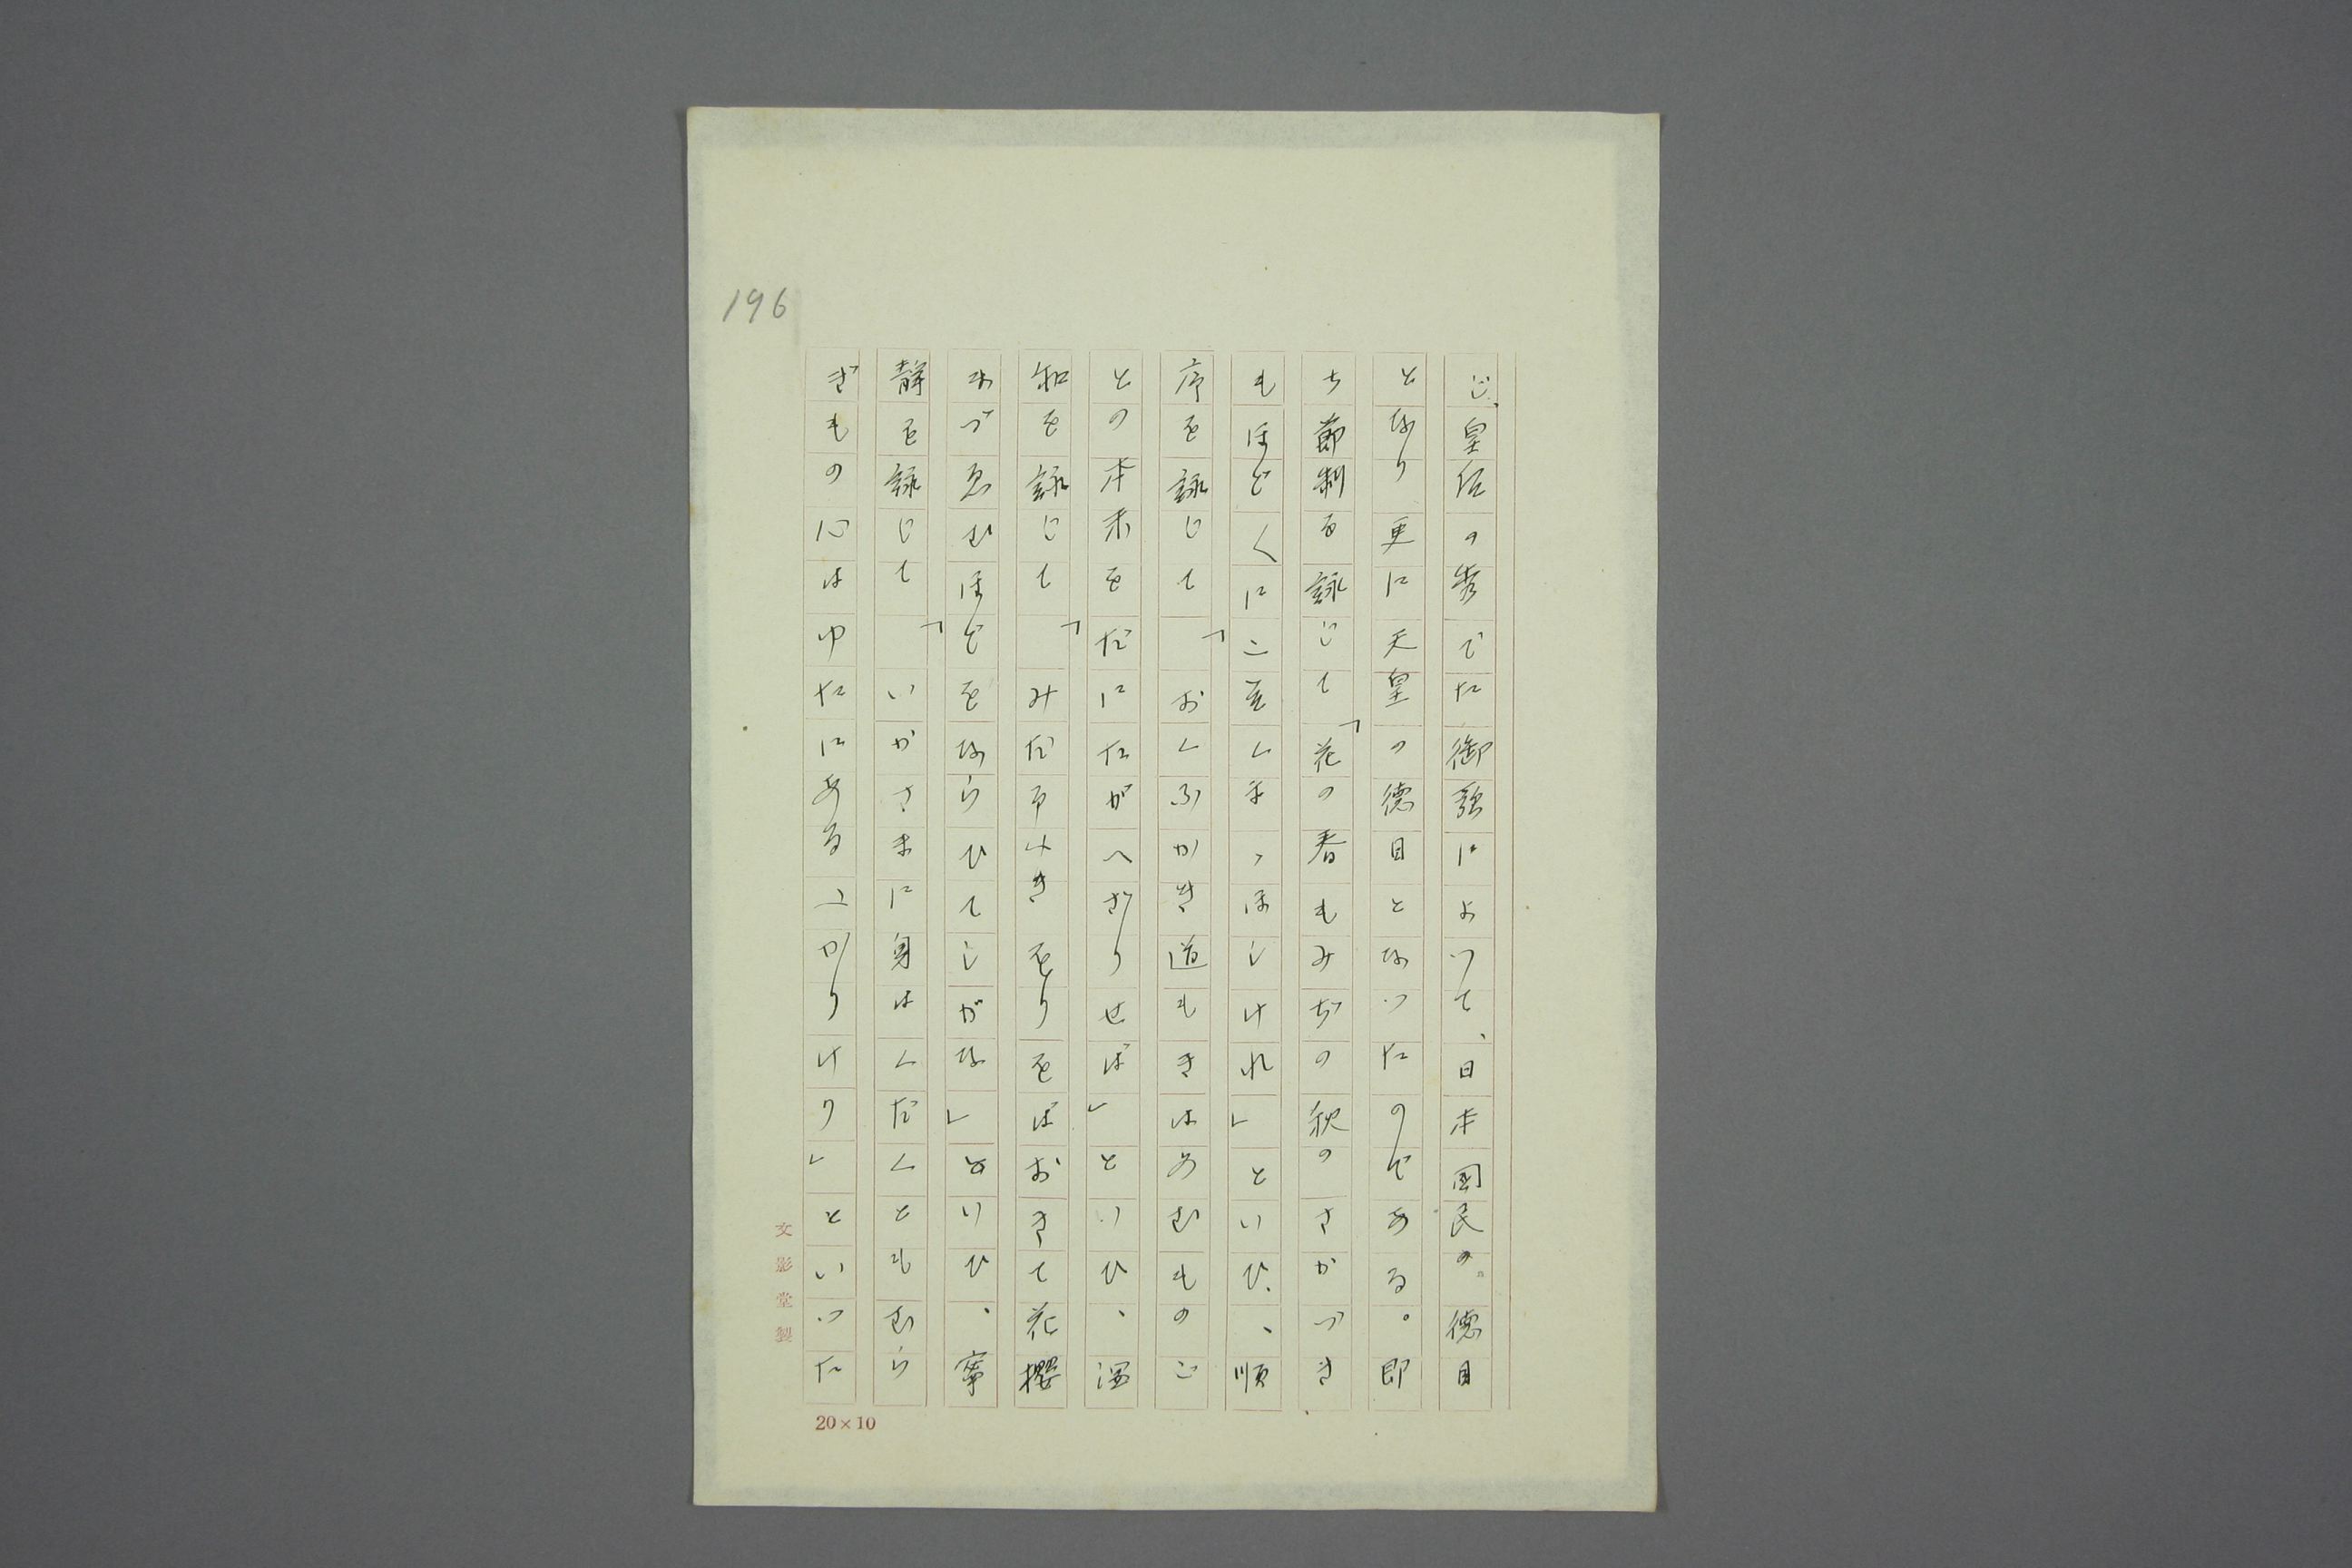 じ、皇后の秀でた御歌によつて、日本國民の德目
となり更に天皇の德目となつたのである。即
ち節制る詠じて「花の春もみぢの秋のさかづき
もほどくにこそくまゝほしけれ」といひ、順
序を詠じて「おくふかき道もきはめむものご
との本末をだにたがへざりせば」といひ、溫
和を詠じて「みだるべきをりをばおきて花櫻
まづゑむほどをならひてしがな」といひ、寧
靜を詠じて「いかさまに身はくだくともむら
ぎもの心はゆたにあるべかりけり」といつた
196
文影堂製
20×10